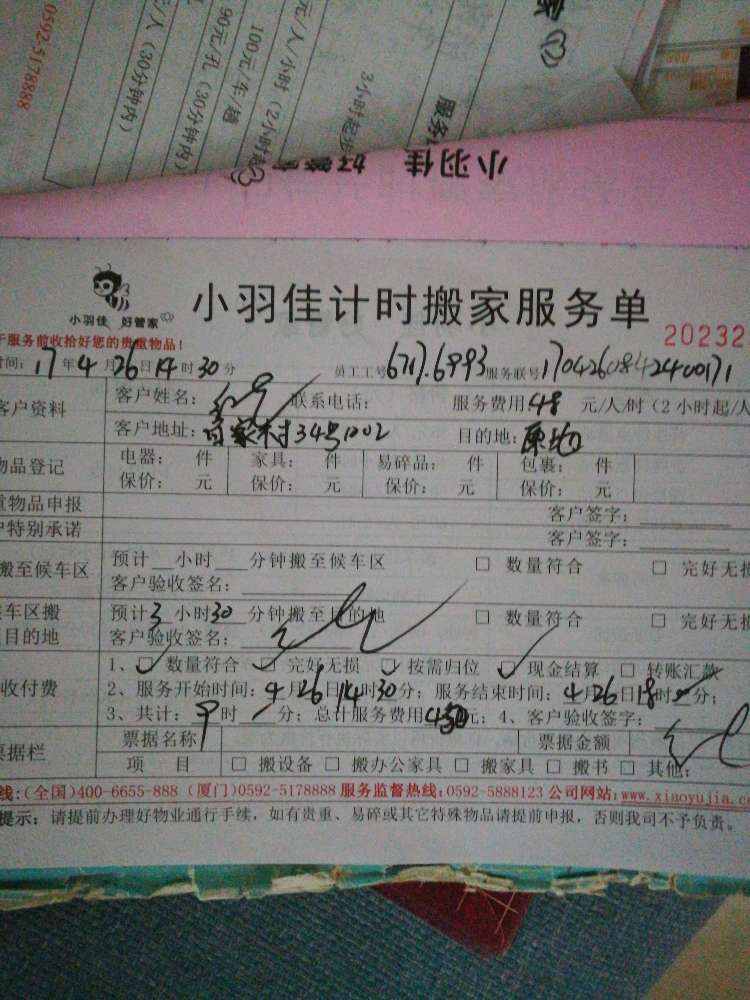 0592-5178888
元/人（30分钟内）
90元/孔（30分钟内）
100元/车/趟
元/人/小时（2小时起
3小时起步
服务
小羽佳 好管家
小羽佳 好管家
小羽佳计时搬家服务单
20232
服务前收拾好您的贵重物品！
时间：17年4月26日14时30分 员工工号6717.6993 服务联号1704260842400171
客户资料 客户姓名： 联系电话： 服务费用48元/人/时（2小时起/人
客户地址：百家村34号1002 目的地：原地
物品登记 电器： 件 家具： 件 易碎品： 件 包裹： 件
保价： 元 保价： 元 保价： 元 保价： 元
重物品申报 客户签字：
户特别承诺 客户签字：
搬至候车区 预计 小时 分钟搬至候车区 □ 数量符合 □ 完好无损
客户验收签名：
车区搬 预计3小时30分钟搬至目的地 □ 数量符合 □ 完好无损
目的地 客户验收签名：
收付费 1、☑ 数量符合 ☑ 完好无损 ☑ 按需归位 ☑ 现金结算 □ 转账汇款
2、服务开始时间：4月26日14时30分；服务结束时间：4月26日18时分；
3、共计： 时 分；总计服务费用450元；4、客户验收签字：
票据栏 票据名称 票据金额
项 目 □ 搬设备 □ 搬办公家具 □ 搬家具 □ 搬书 □ 其他：
线：(全国)400-6655-888 (厦门)0592-5178888 服务监督热线：0592-5888123 公司网站：www.xiaoyujia.c
提示：请提前办理好物业通行手续，如有贵重、易碎或其它特殊物品请提前申报，否则我司不予负责。